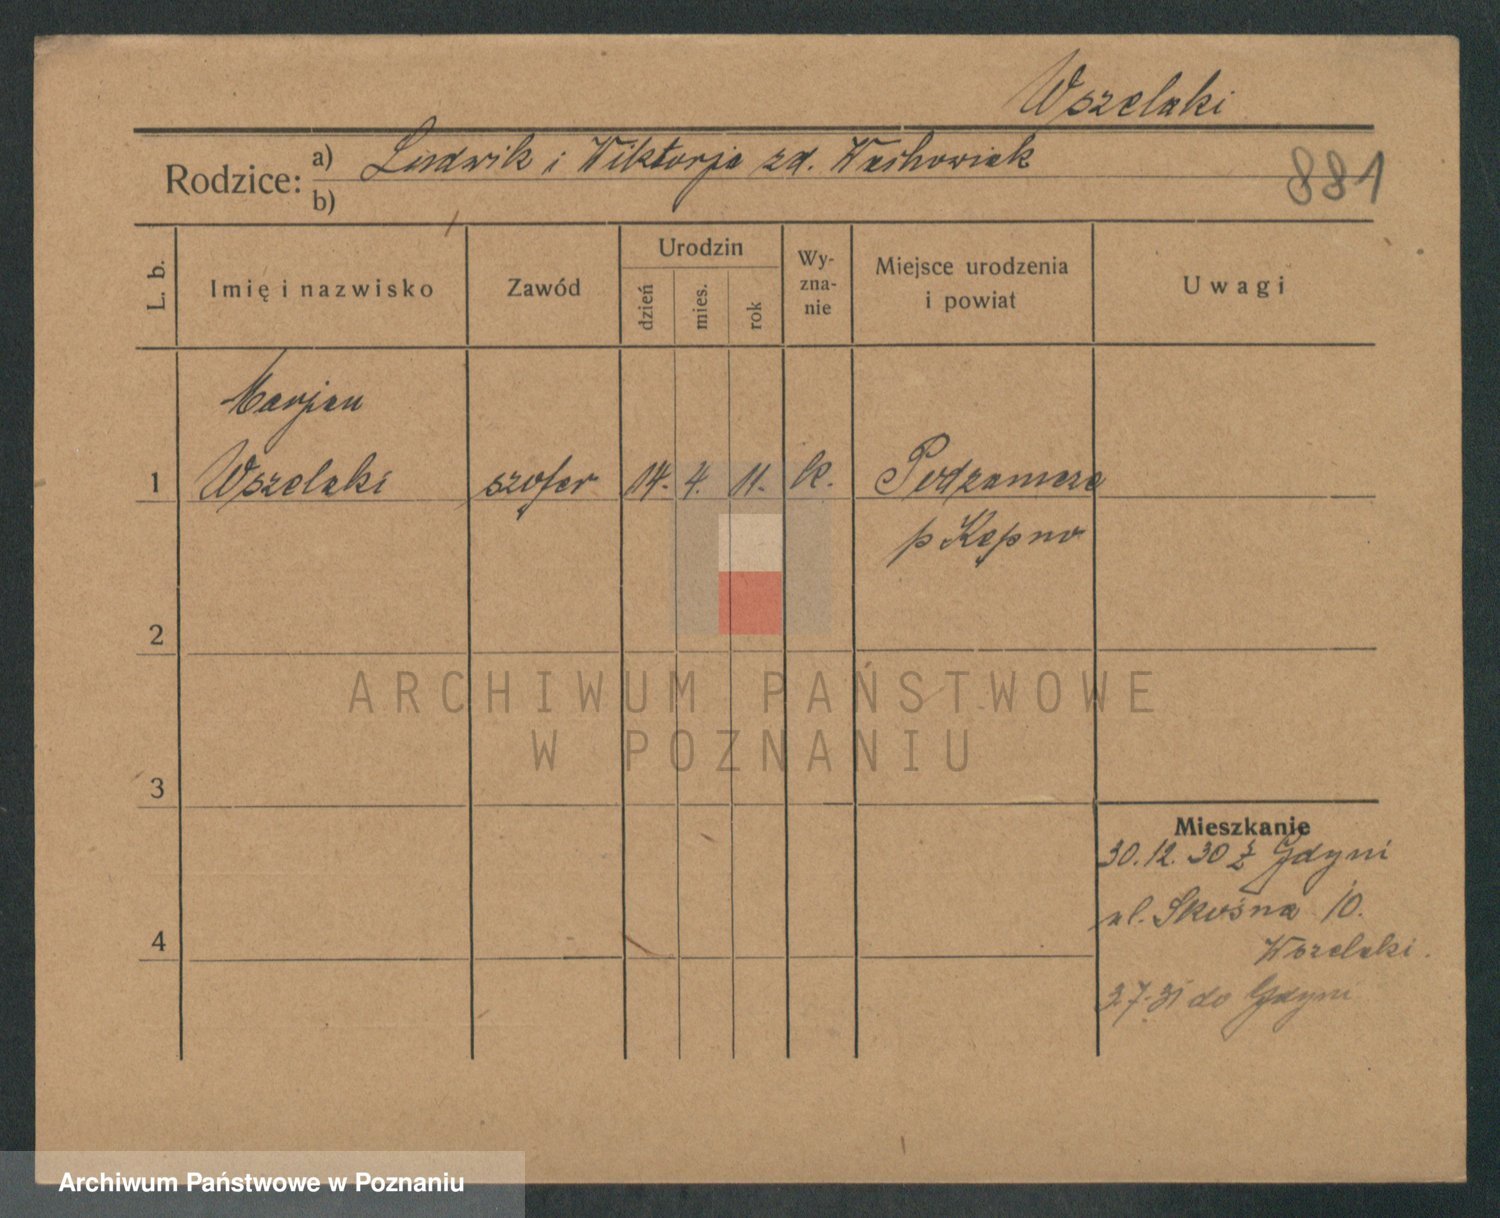 Wszelaki
Rodzice: a) Ludwik i Wiktorja zd. Wachowiak
b)
881
L. b.
Imię i nazwisko
Zawód
Urodzin
dzień
mies.
rok
Wy-
zna-
nie
Miejsce urodzenia
i powiat
Uwagi
Marjan
1 Wszelaki szofer 14. 4. 11. k. Podzamcze
p Kępno
2
3
4
Mieszkanie
30.12.30 z Gdyni
ul. Skośna 10.
Wszelaki.
3.7.31 do Gdyni
ARCHIWUM PAŃSTWOWE
W POZNANIU
Archiwum Państwowe w Poznaniu